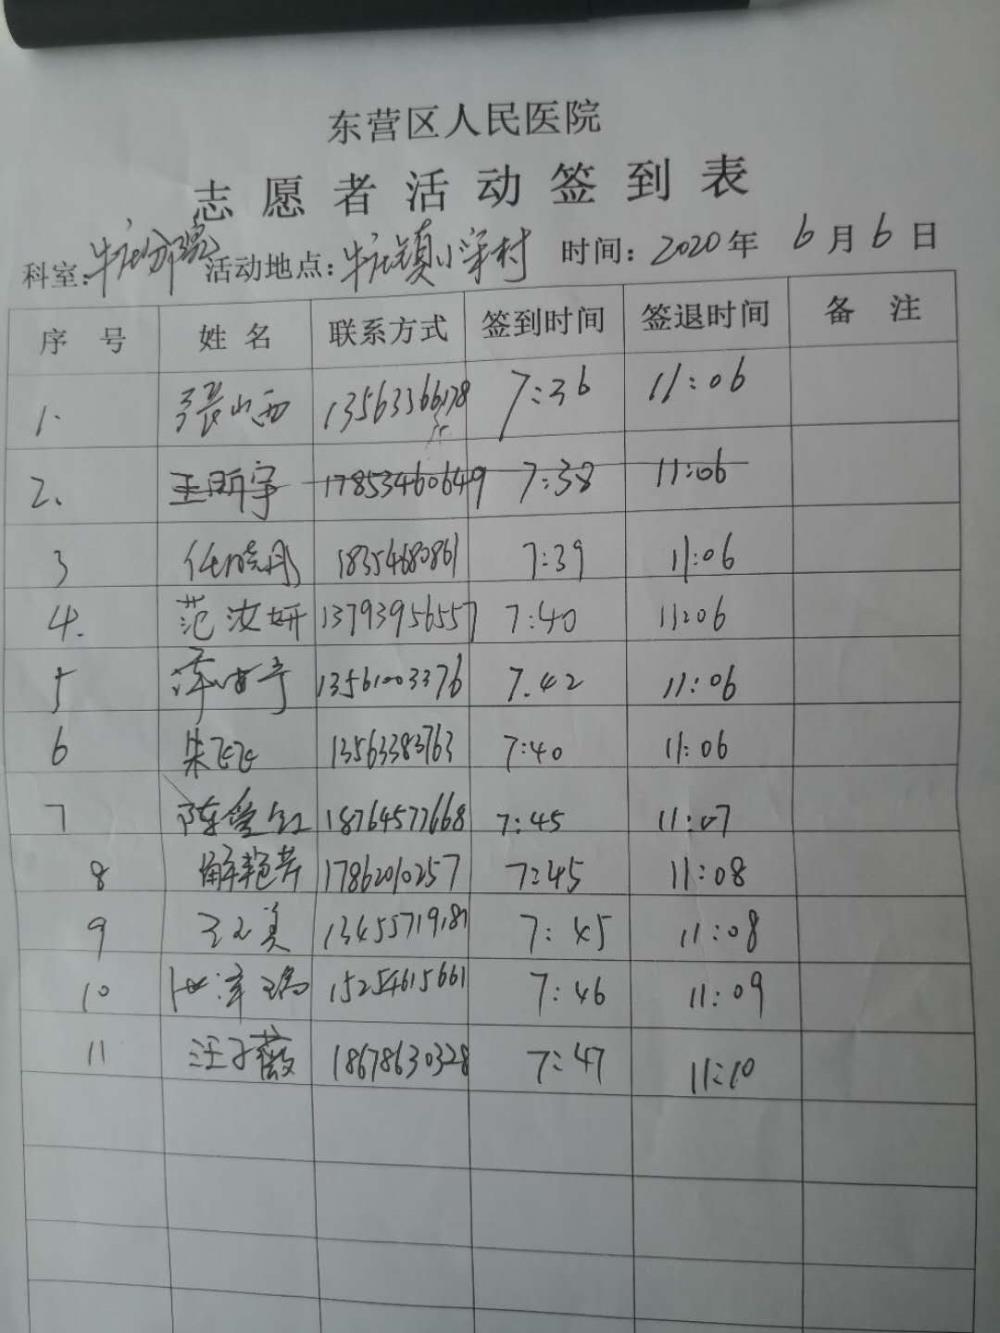 东营区人民医院
志愿者活动签到表
科室:牛庄分院 活动地点:牛庄镇小宋村 时间:2020年6月6日
序号 姓名 联系方式 签到时间 签退时间 备注
1. 张山西 13563366178 7:36 11:06
2. 王昕宇 17853460649 7:38 11:06
3 任晓彤 18354680861 7:39 11:06
4. 范汝妍 13793956557 7:40 11:06
5 13561003376 7.42 11:06
6 朱飞飞 13563383763 7:40 11:06
7 陈爱红 18764577668 7:45 11:07
8 解艳芹 17862010257 7:45 11:08
9 13455719181 7:45 11:08
10 15254615661 7:46 11:09
11 汪子薇 18678630328 7:47 11:10